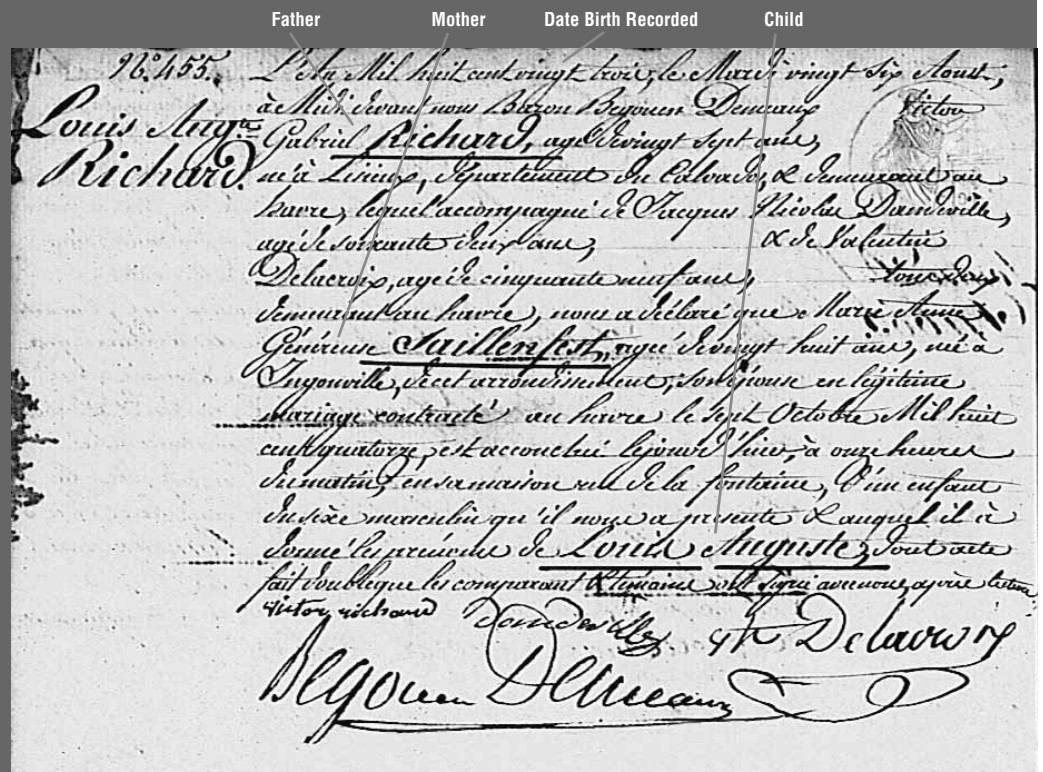 Father Mother Date Birth Recorded Child
No. 455. L'an Mil huit cent vingt trois, le Mardi vingt Six Aoust,
à Midi devant nous Baron Begouen Demeaux Victor
Louis Augte Gabriel Richard, agé de vingt sept ans,
Richard. né à Lisieux, département du Calvados, & demeurant au
havre, lequel accompagné de Jacques Nicolas Dandeville,
agé de soixante ans, & de Valentin
Delacroix, agé de cinquante neuf ans, tous deux
demeurant au havre, nous a déclaré que Marie Anne
Généreuse Taillenfest, agée de vingt huit ans, née à
Ingouville, de cet arrondissement, son épouse en légitime
mariage contracté au havre le sept Octobre Mil huit
cent quatorze, est accouchée le jour d'hier, à onze heures
du matin, en sa maison rue de la fontaine, d'un enfant
du sèxe masculin qu'il nous a présenté & auquel il à
donné les prénoms de Louis Auguste, dont acte
fait double que les comparant & témoins ont signé avec nous, après lecture
victor richard Dandeville Delacroix
Begouen Demeaux